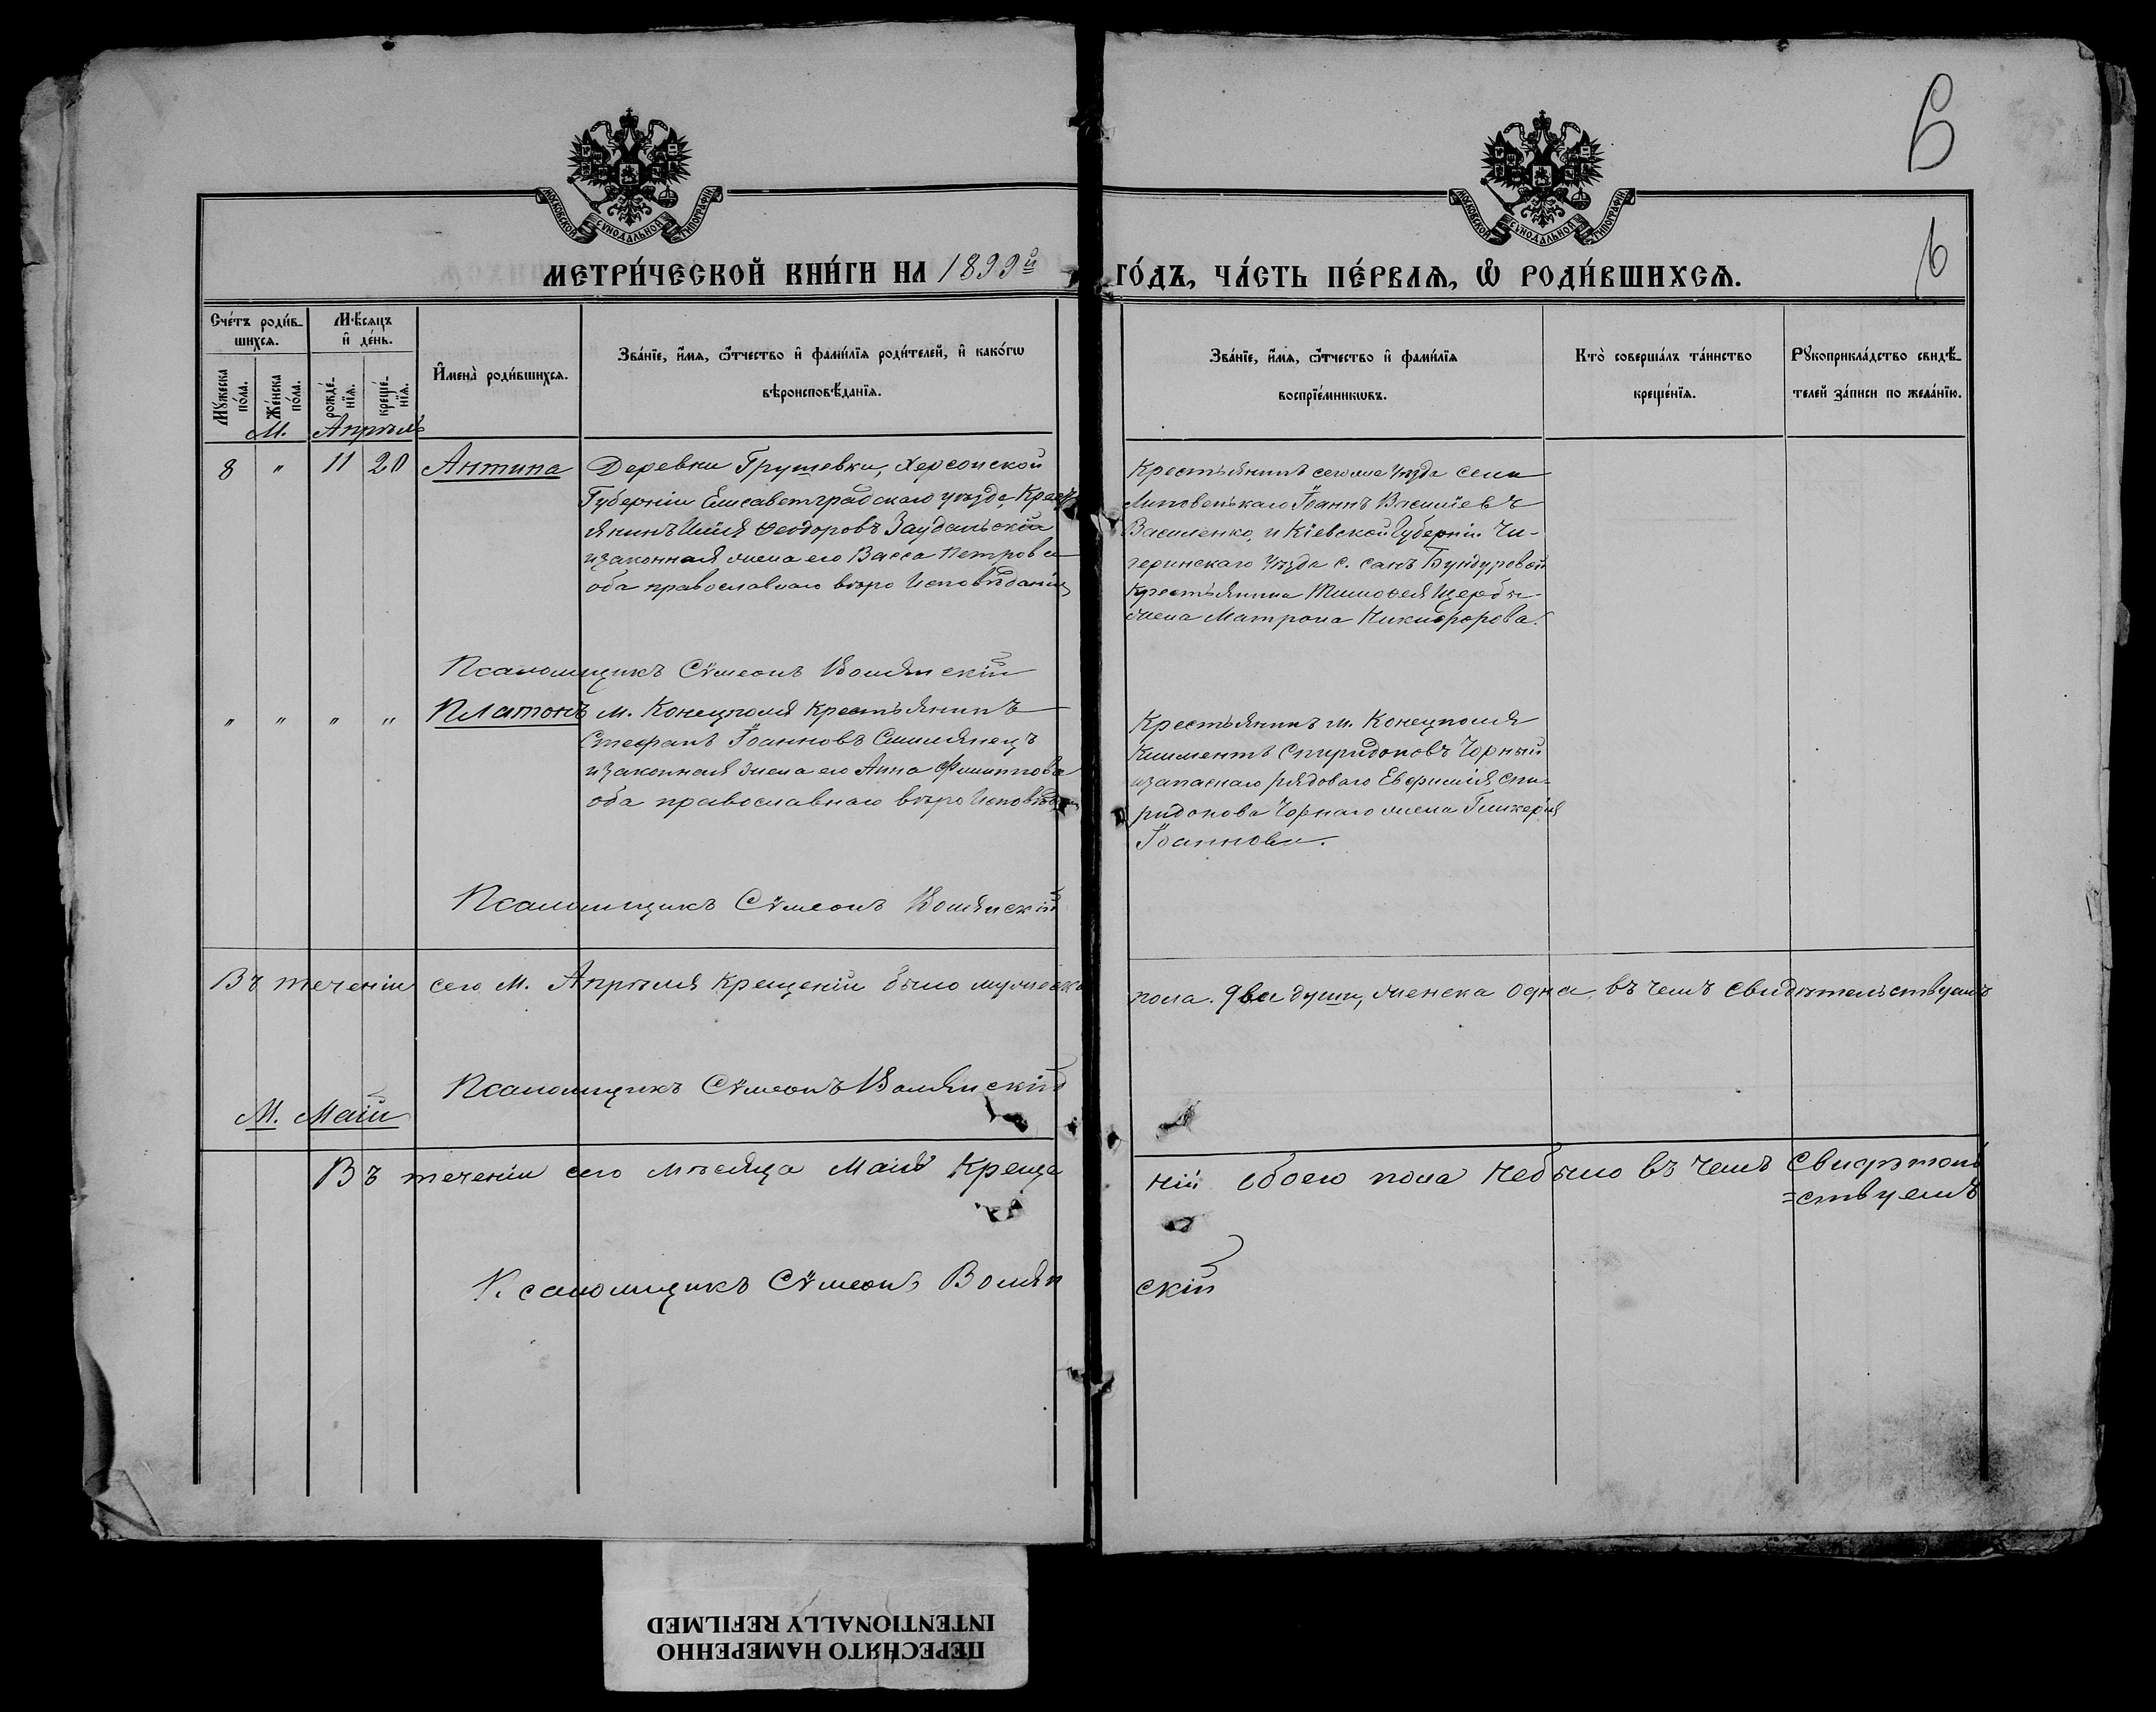 6
МОСКОВСКОЙ СѴНОДАЛЬНОЙ ТИПОГРАФІИ
МОСКОВСКОЙ СѴНОДАЛЬНОЙ ТИПОГРАФІИ
6
МЕТРИ́ЧЕСКОЙ КНИ́ГИ НА 1899й ГО́ДЪ, ЧА́СТЬ ПЕ́РВАѦ, Ѿ РОДИ́ВШИХСѦ.
Сче́тъ роди́в-
шихсѧ.
Мѣ́сѧцъ
и҆ де́нь.
Мꙋ́жеска по́ла.
Же́нска по́ла.
рожде́-нїѧ.
креще́-нїѧ.
И҆мена̀ роди́вшихсѧ.
Зва́нїе, и҆́мѧ, ѻ҆́тчество и҆ фами́лїѧ роди́телей, и҆ како́гѡ
вѣроисповѣ́данїѧ.
Зва́нїе, и҆́мѧ, ѻ҆́тчество и҆ фами́лїѧ
воспрїе́мникѡвъ.
Кто̀ соверша́лъ та́инство
креще́нїѧ.
Рꙋкоприкла́дство свидѣ́-
телей за́писи по жела́нїю.
М. Апрѣль
8 " 11 20 Антипа
Деревни Грушевки, Херсонской
Губерніи Елисаветградскаго уѣзда, Крест
янинъ Илія Ѳеодоровъ Заудальскій
и законная жена его Васса Петрова
оба православнаго вѣро Исповѣданія
Крестьянинъ сегоже Уѣзда села
Липовенькаго Іоаннъ Василіевъ
Василенко, и Кіевской Губерніи Чи-
геринскаго Уѣзда с. Бундуровой
Крестьянина Тимоѳея Щербы
жена Матрона Никифорова.
Псаломщикъ Сѵмеонъ Волянскій
" " " " Платонъ
м. Конецполя Крестьянинъ
Стефанъ Іоанновъ Смилянецъ
и законная жена его Анна Филиппова
оба православнаго вѣро Исповѣдан
Крестьянинъ м. Конецполя
Климентъ Спиридоновъ Чорный
и запаснаго рядоваго Евфимія Спи-
ридонова Чорнаго жена Гликерія
Іоаннова.
Псаломщикъ Сѵмеонъ Волянскій
Въ теченіи сего М. Апрѣля Крещеній было мужеска пола. Два души, женска одна, въ чемъ свидѣтельствуемъ
Псаломщикъ Сѵмеонъ Волянскій
М. Маій
Въ теченіи сего Мѣсяца Маія Креще ній обоего пола небыло въ чемъ Свидѣтель
=ствуемъ
Псаломщикъ Сѵмеонъ Волян скій
ПЕРЕСНЯТО НАМЕРЕННО
INTENTIONALLY REFILMED